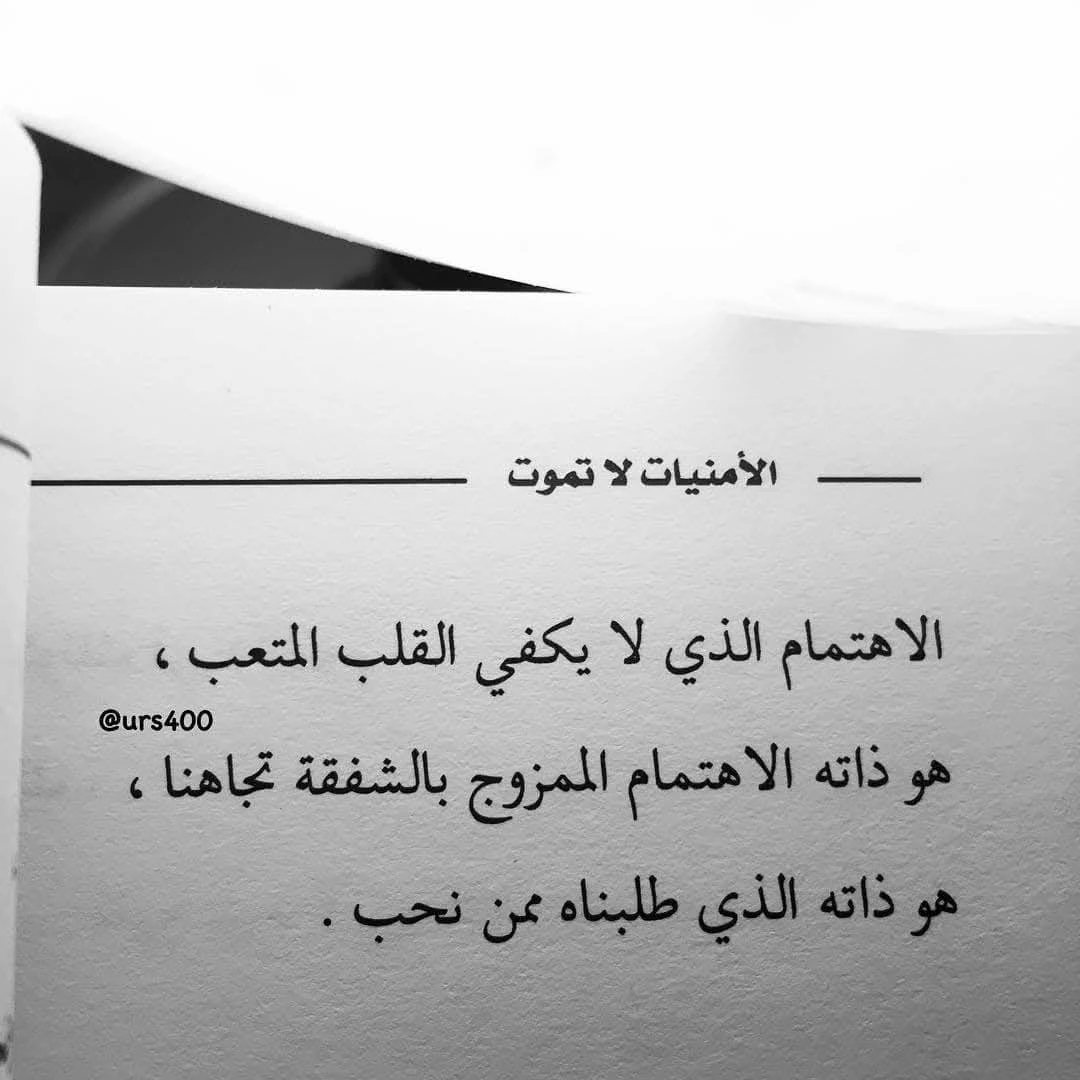 الأمنيات لا تموت
الاهتمام الذي لا يكفي القلب المتعب ،
@urs400
هو ذاته الاهتمام الممزوج بالشفقة تجاهنا ،
هو ذاته الذي طلبناه ممن نحب .